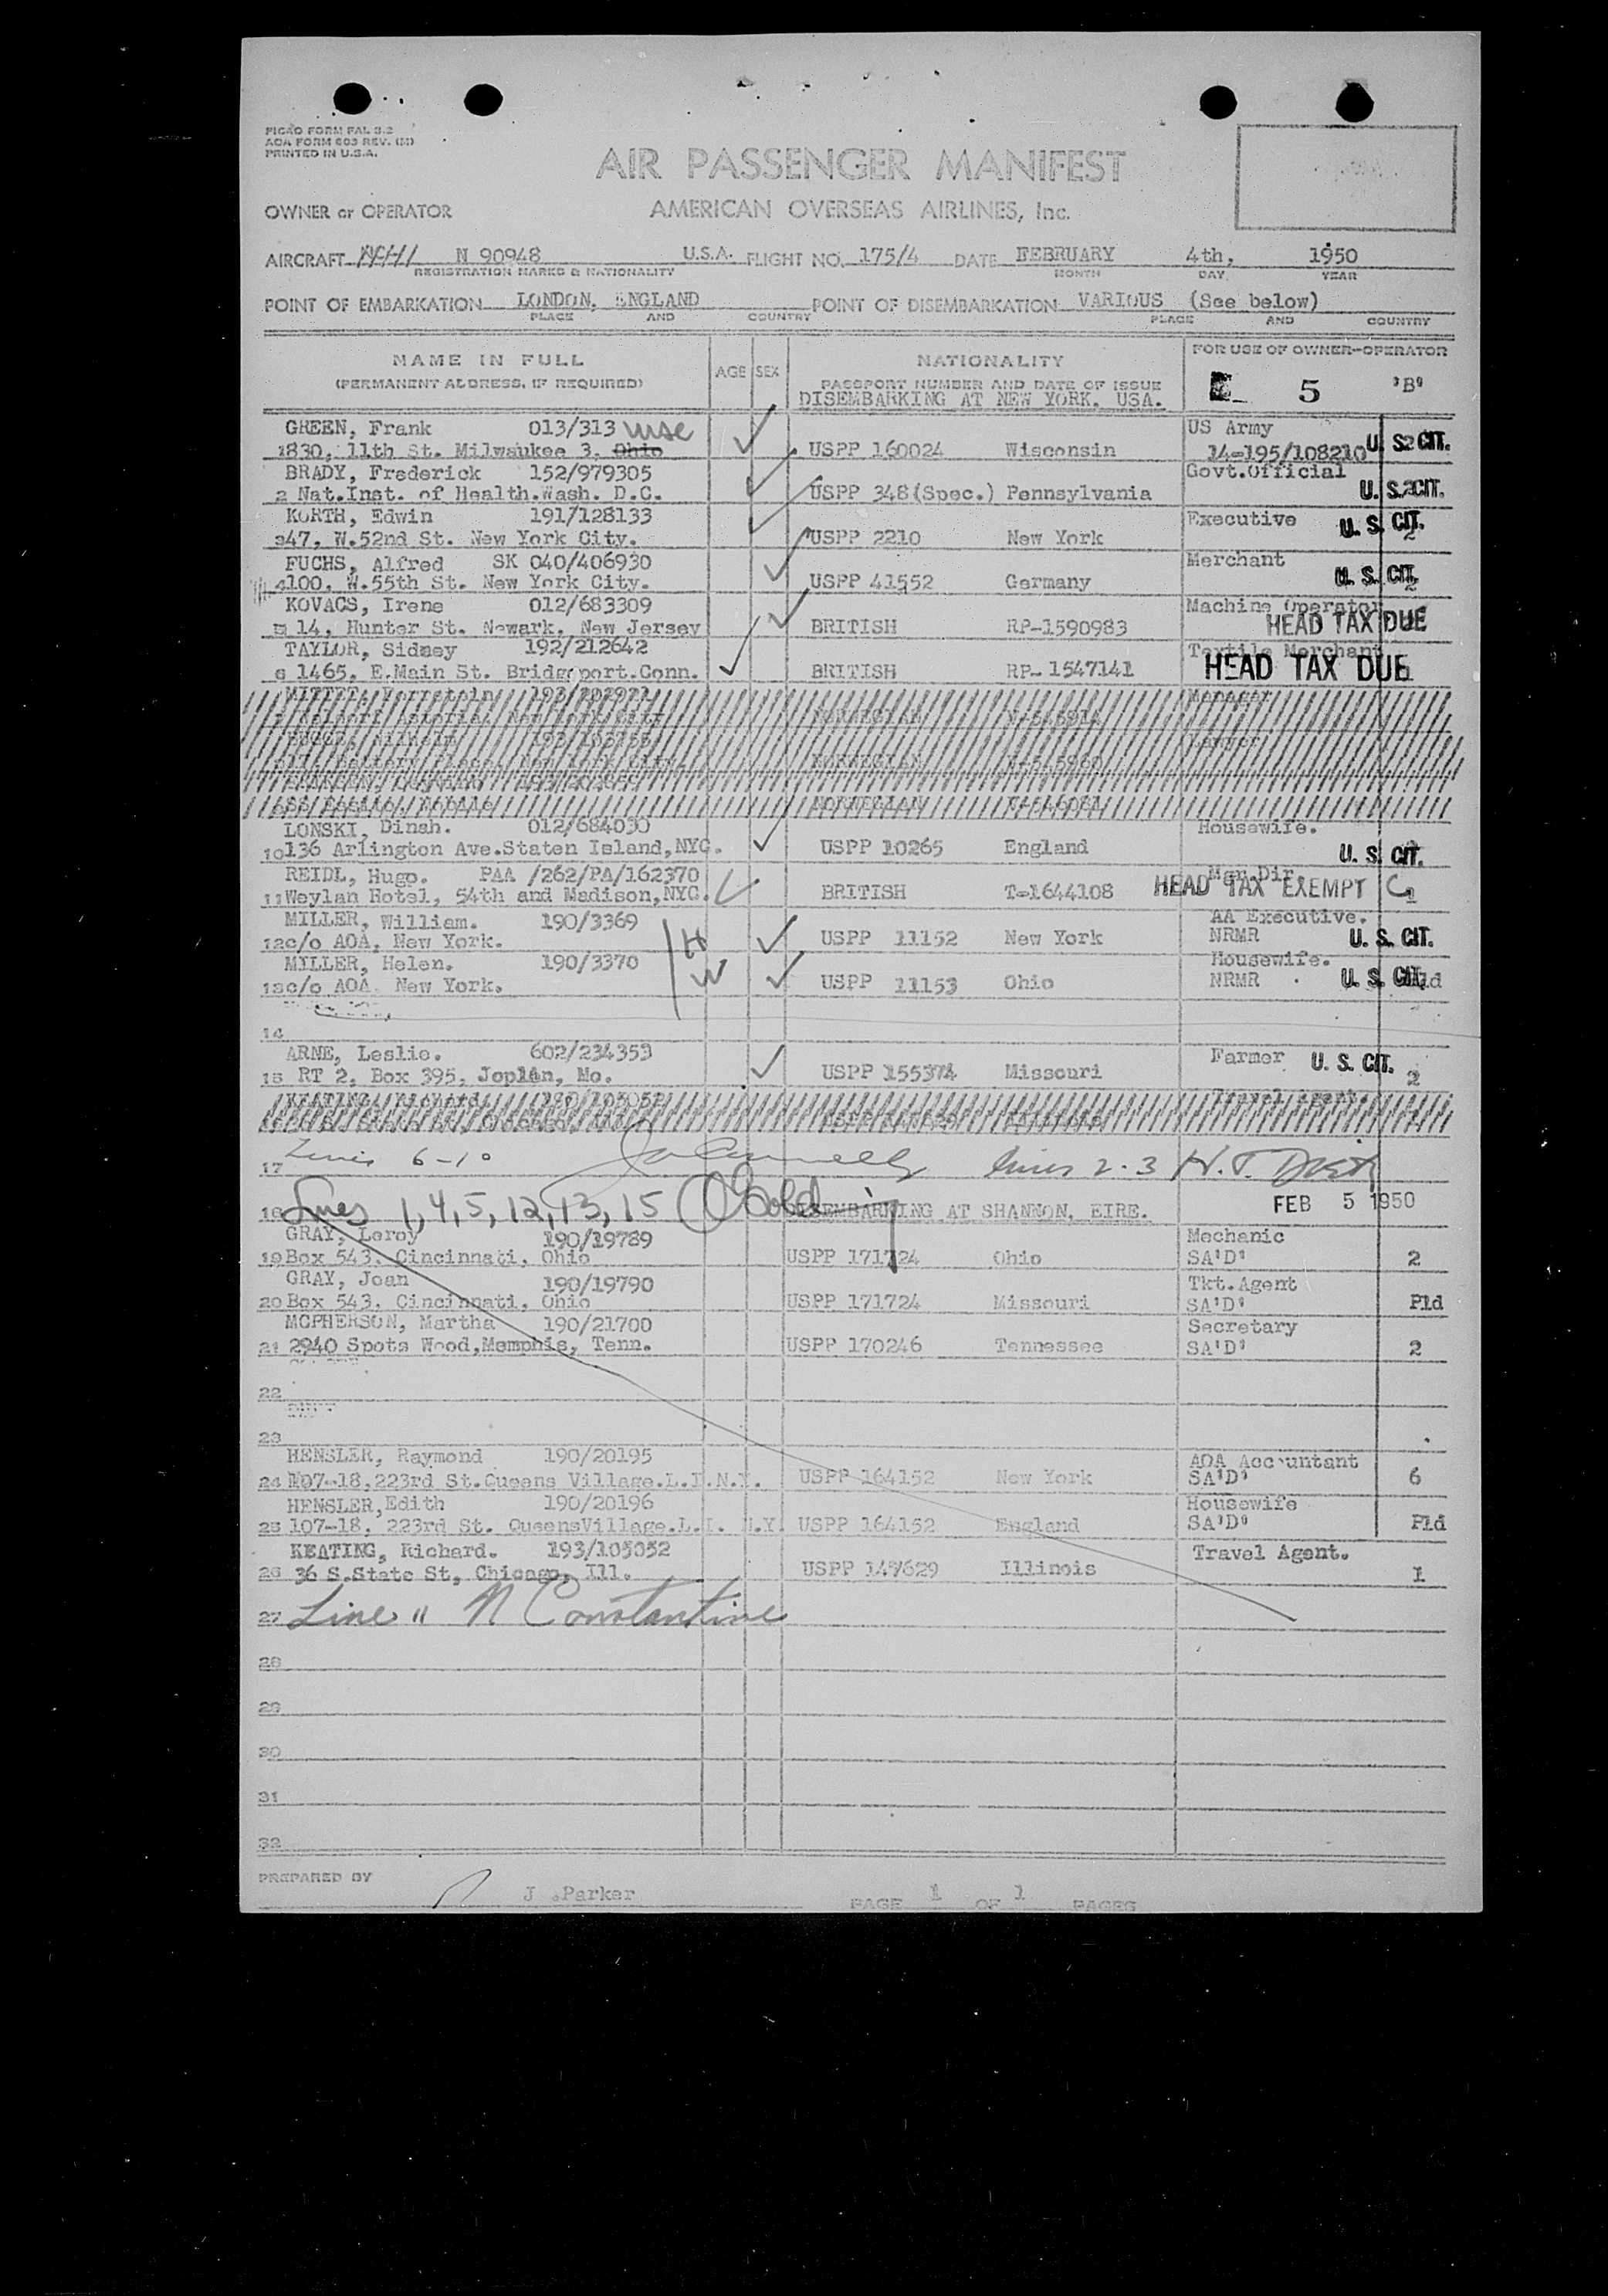 PICAO FORM FAL 3.2
AOA FORM 603 REV. (M)
PRINTED IN U.S.A.
AIR PASSENGER MANIFEST
OWNER or OPERATOR AMERICAN OVERSEAS AIRLINES, Inc.
AIRCRAFT N 90948 U.S.A. FLIGHT NO. 175/4 DATE FEBRUARY 4th, 1950
REGISTRATION MARKS & NATIONALITY MONTH DAY YEAR
POINT OF EMBARKATION LONDON, ENGLAND POINT OF DISEMBARKATION VARIOUS (See below)
PLACE AND COUNTRY PLACE AND COUNTRY
NAME IN FULL AGE SEX NATIONALITY FOR USE OF OWNER-OPERATOR
(PERMANENT ADDRESS, IF REQUIRED) PASSPORT NUMBER AND DATE OF ISSUE 5 'B'
DISEMBARKING AT NEW YORK. USA.
GREEN, Frank 013/313 US Army
1830, 11th St. Milwaukee 3, Ohio USPP 160024 Wisconsin 14-195/108210 U. S. CIT. 2
BRADY, Frederick 152/979305 Govt.Official
2 Nat.Inst. of Health.Wash. D.C. USPP 348(Spec.) Pennsylvania U. S. CIT. 2
KORTH, Edwin 191/128133 Executive U. S. CIT.
3 47, W.52nd St. New York City. USPP 2210 New York 2
FUCHS, Alfred SK 040/406930 Merchant
4 100, W.55th St. New York City. USPP 41552 Germany U. S. CIT. 2
KOVACS, Irene 012/683309 Machine Operator
5 14, Hunter St. Newark, New Jersey BRITISH RP-1590983 HEAD TAX DUE
TAYLOR, Sidney 192/212642 Textile Merchant
6 1465, E.Main St. Bridgeport.Conn. BRITISH RP-1547141 HEAD TAX DUE
193/202971 Manager
New York City NORWEGIAN
Lawyer
Battery Place, New York City. NORWEGIAN
NORWEGIAN
LONSKI, Dinah. 012/684030 Housewife.
10 136 Arlington Ave.Staten Island,NYC. USPP 10265 England U. S. CIT.
REIDL, Hugo. PAA /262/PA/162370 Mgr.Dir.
11 Weylan Hotel, 54th and Madison,NYC. BRITISH T-1644108 HEAD TAX EXEMPT
MILLER, William. 190/3369 H AA Executive.
12 c/o AOA, New York. USPP 11152 New York NRMR U. S. CIT.
MILLER, Helen. 190/3370 W Housewife.
13 c/o AOA. New York. USPP 11153 Ohio NRMR U. S. CIT.
14
ARNE, Leslie. 602/234353 Farmer U. S. CIT.
15 RT 2, Box 395, Joplin, Mo. USPP 155374 Missouri 2
KEATING, Richard. 193/105052 Travel Agent.
17 Lines 6-10 lines 2-3
18 Lines 1,4,5,12,13,15 Gold DISEMBARKING AT SHANNON, EIRE. FEB 5 1950
GRAY, Leroy 190/19789 Mechanic
19 Box 543, Cincinnati, Ohio USPP 171724 Ohio SA'D' 2
GRAY, Joan 190/19790 Tkt.Agent
20 Box 543, Cincinnati, Ohio USPP 171724 Missouri SA'D' Pld
MCPHERSON, Martha 190/21700 Secretary
21 2940 Spots Wood,Memphis, Tenn. USPP 170246 Tennessee SA'D' 2
22
23
HENSLER, Raymond 190/20195 AOA Accountant
24 107-18,223rd St.Queens Village.L.I.N.Y. USPP 164152 New York SA'D' 6
HENSLER,Edith 190/20196 Housewife
25 107-18, 223rd St. QueensVillage.L.I. N.Y. USPP 164152 England SA'D' Pld
KEATING, Richard. 193/105052 Travel Agent.
26 36 S.State St, Chicago, Ill. USPP 147629 Illinois 1
27 Line 11 N Constantine
28
29
30
31
32
PREPARED BY J .Parker PAGE 1 OF 1 PAGES